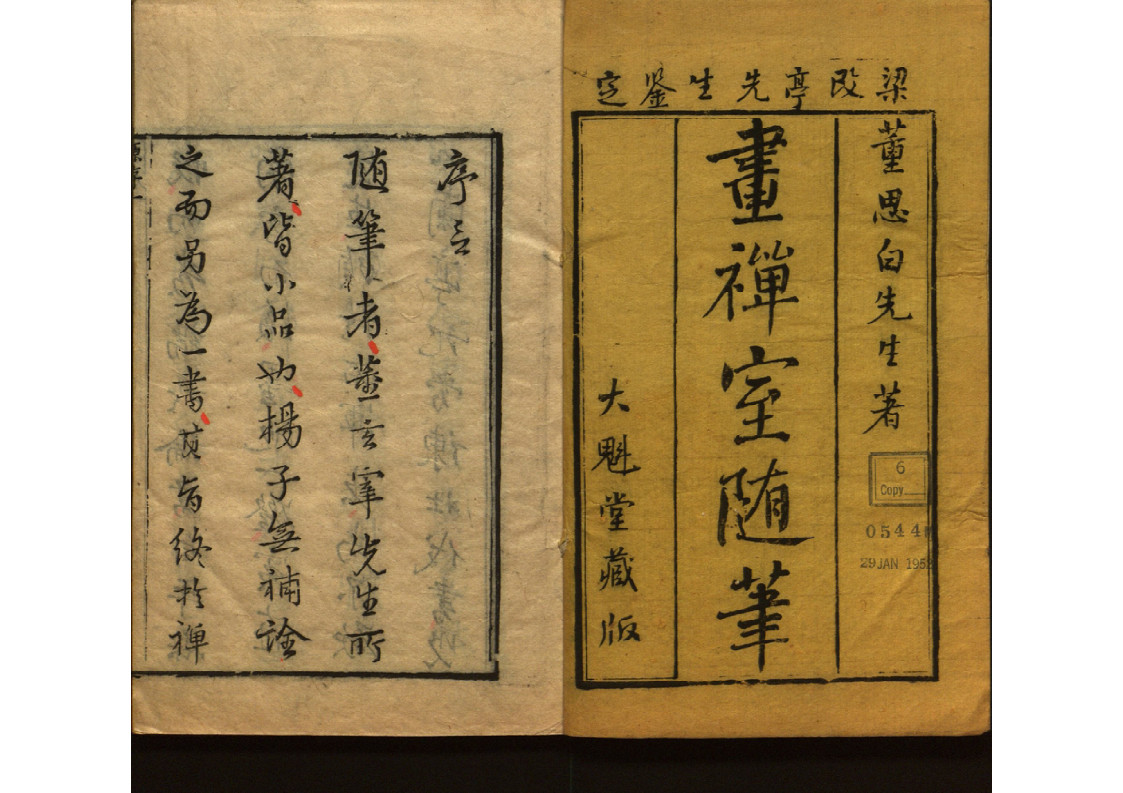 梁改亭先生鑒定
董思白先生著
畫禪室随筆
大魁堂藏版
6
Copy
0544
29 JAN 195
序言
随筆者董玄宰先生所
著皆小品也楊子無補詮
之而另為一書其旨終於禅